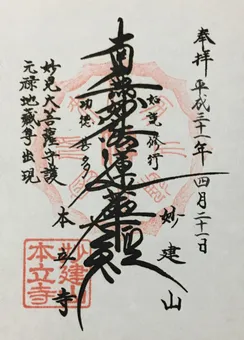 奉拝 平成三十一年四月二十一日
妙建山
如説修行
南無妙法蓮華経
功徳甚多
本立寺
妙見大菩薩守護
元禄地蔵尊出現
妙建山
本立寺